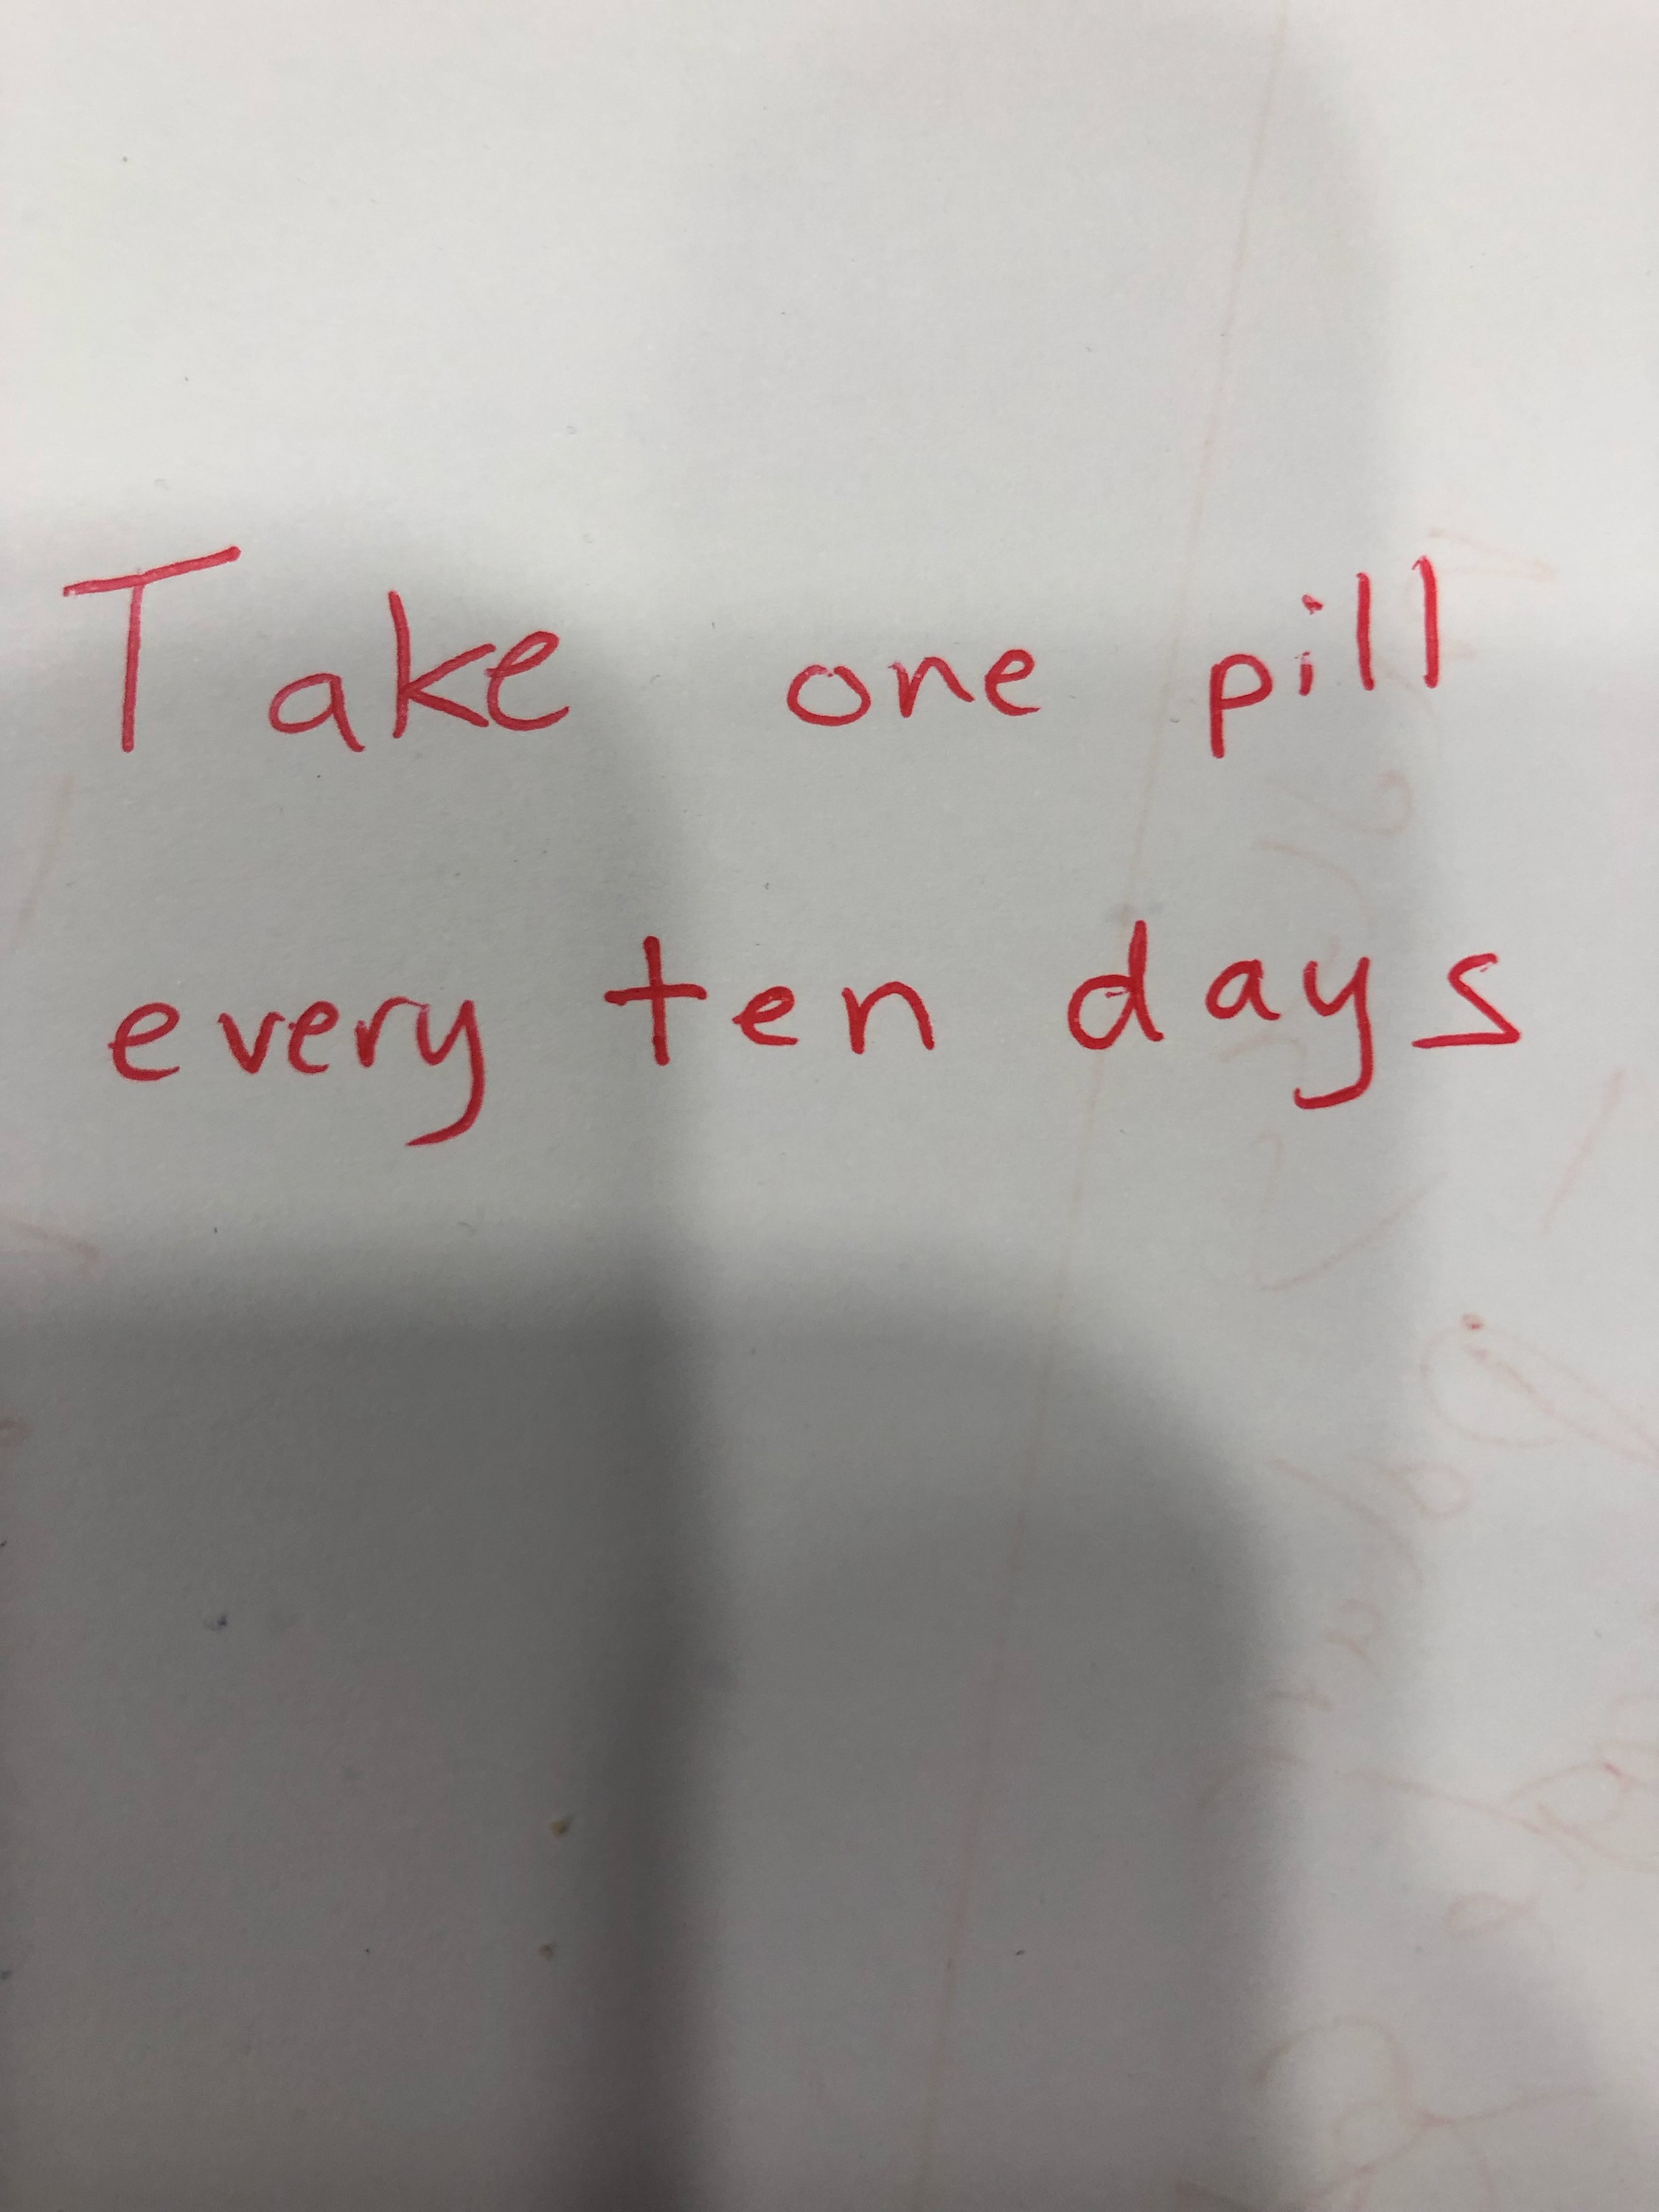 Take one pill
every ten days